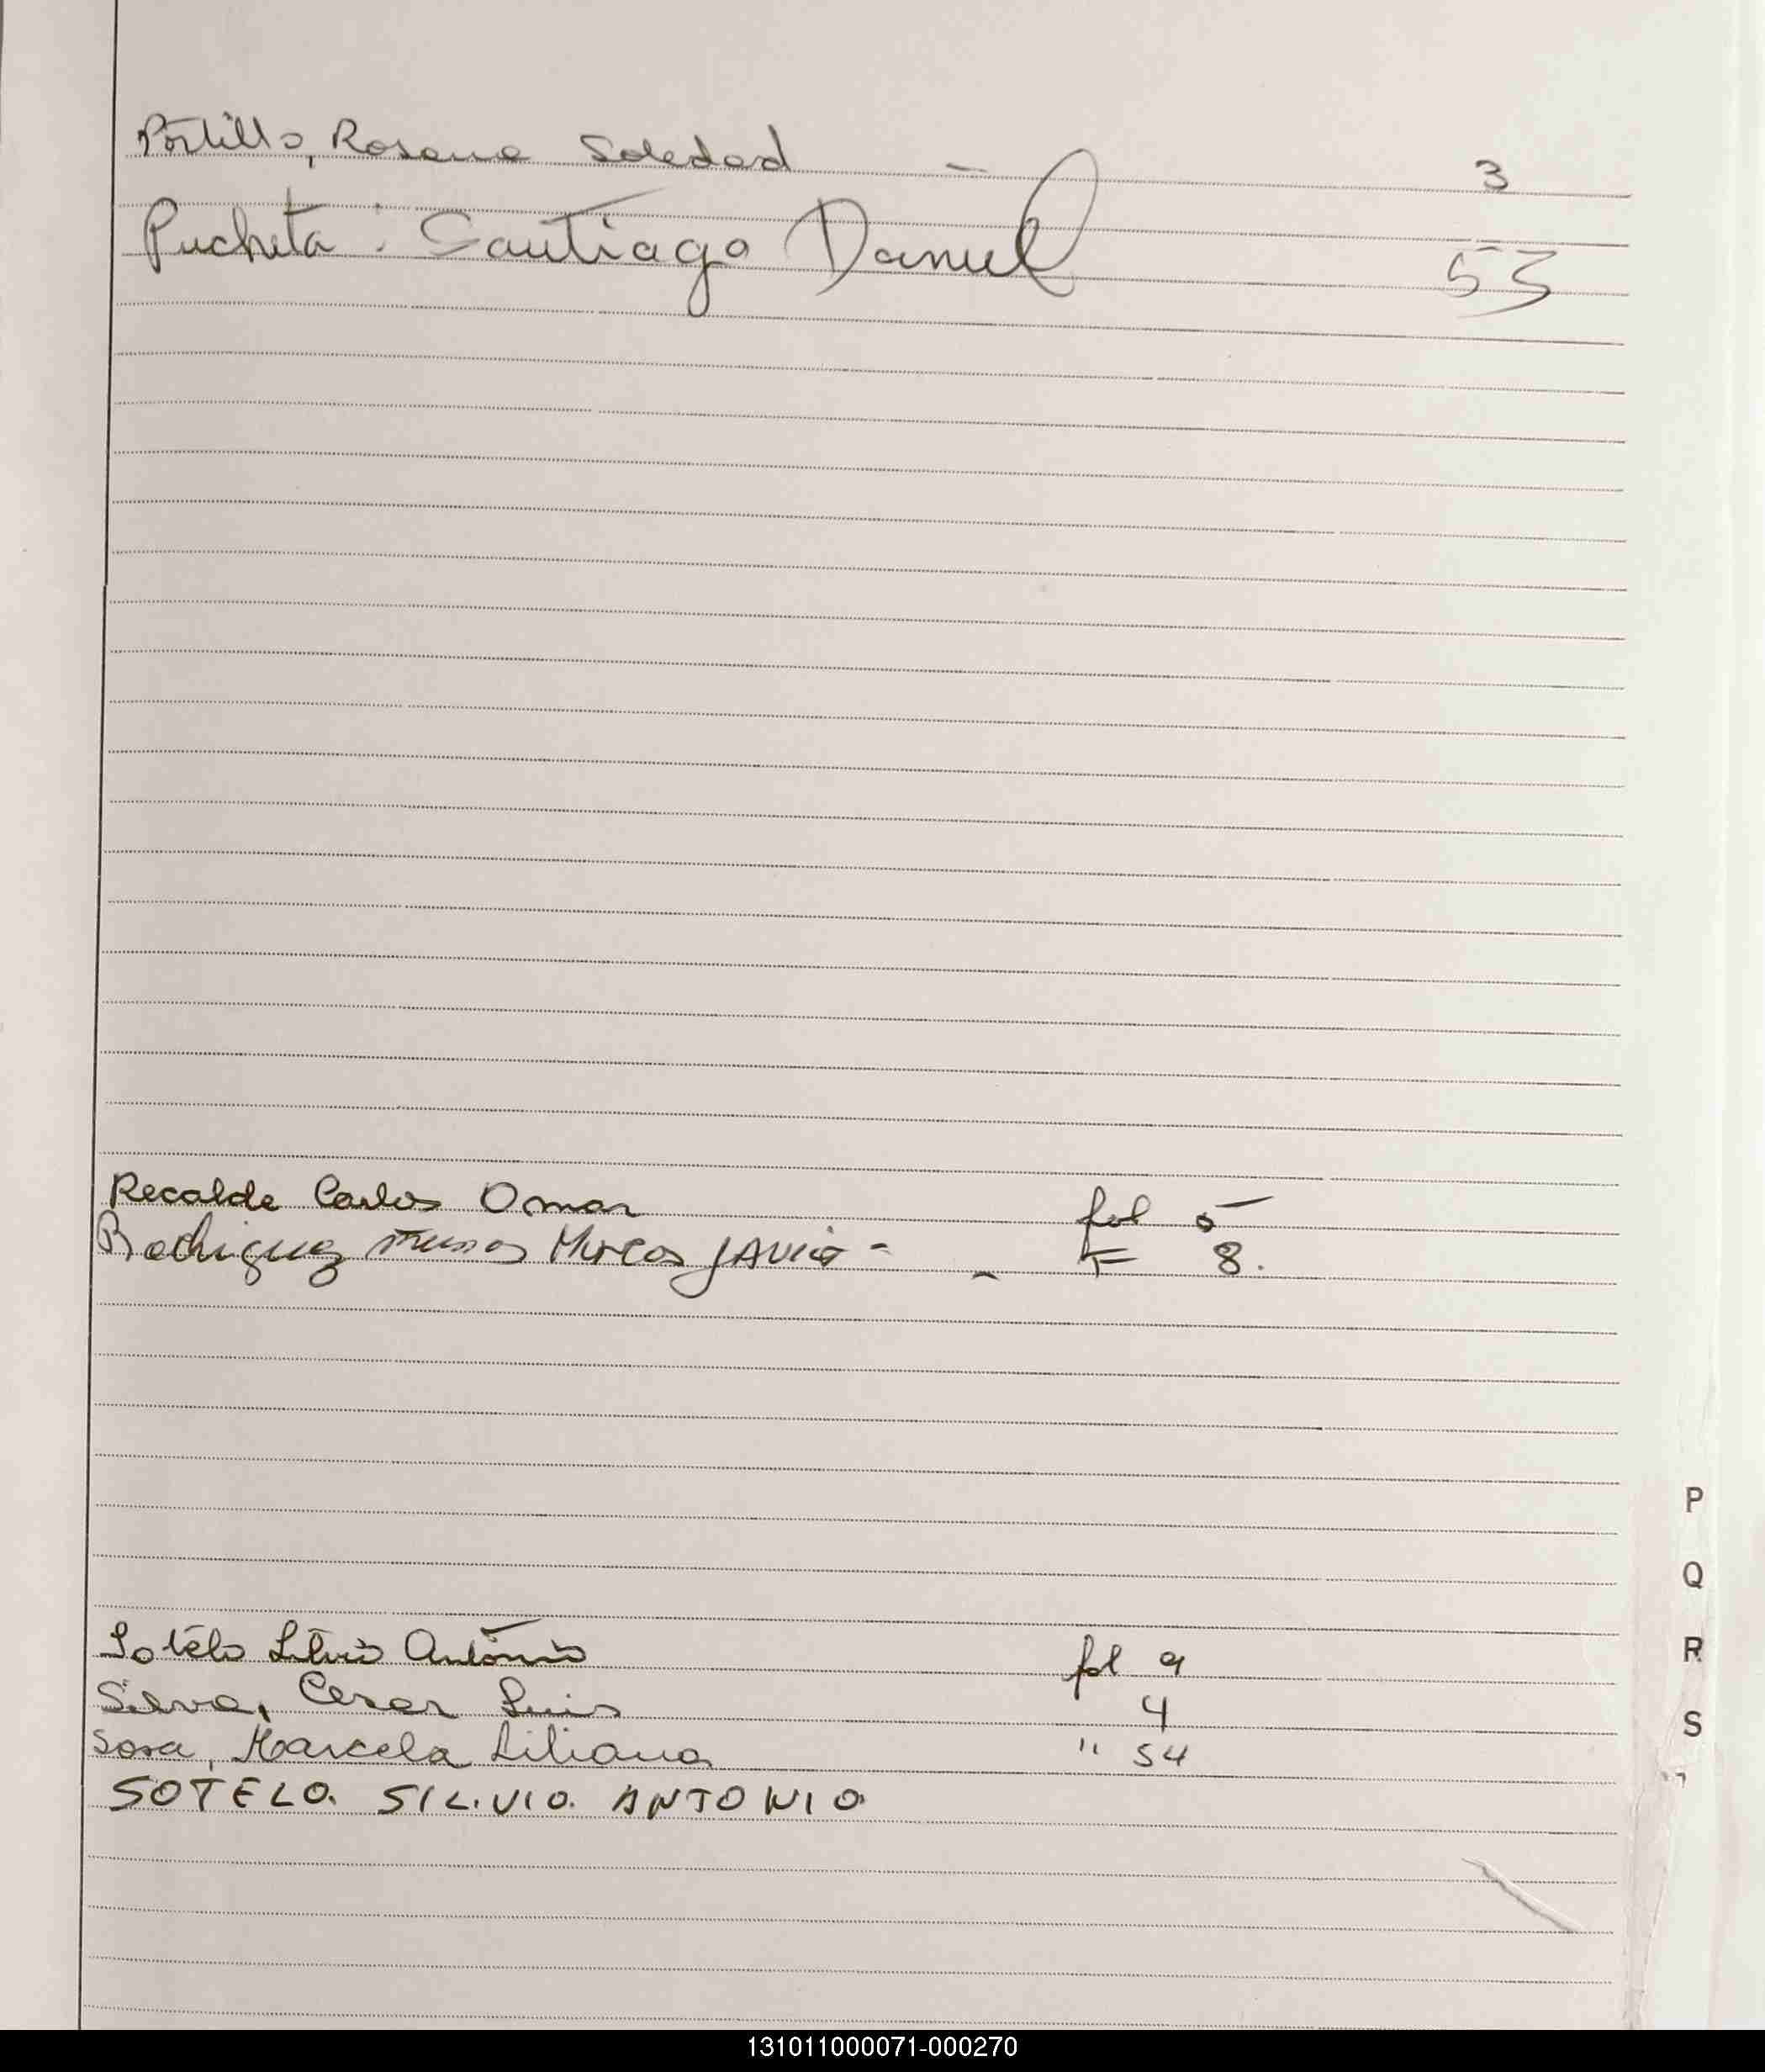 Portillo, Rosana Soledad - 3
Pucheta: Santiago Daniel 53
Recalde Carlos Omar fol 5
Rodriguez Marcos JAVier - - F 8.
Sotelo Silvio Antonio fol 9
Silva, Cesar Luis 4
Sosa, Marcela Liliana " 54
SOTELO. SILVIO. ANTONIO
P
Q
R
S
131011000071-000270